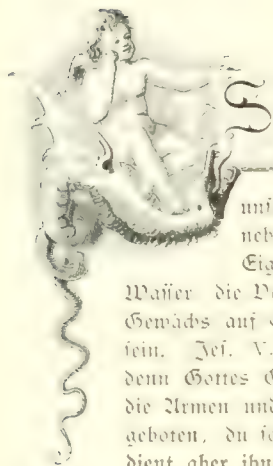 S
uns
neb
Eig
Waſſer die V
Gewächs auf
ſein. Jeſ. V.
denn Gottes G
die Armen und
geboten, du ſ
dient aber ihn